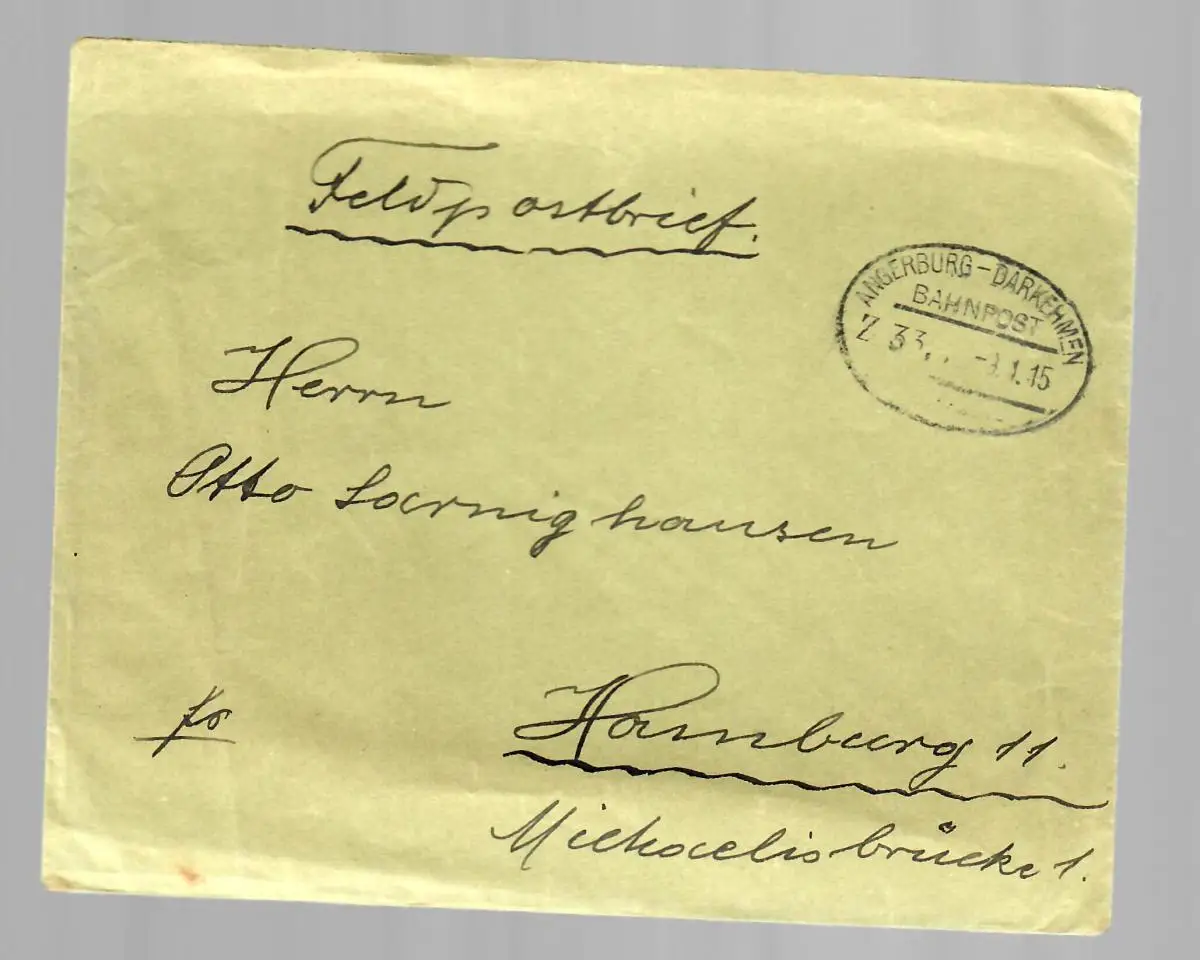 Feldpostbrief.
ANGERBURG-DARKEHMEN
BAHNPOST
Z 33 1.15
Herrn
Otto Loernighausen
fr
Hamburg 11.
Michaelisbrücke 1.